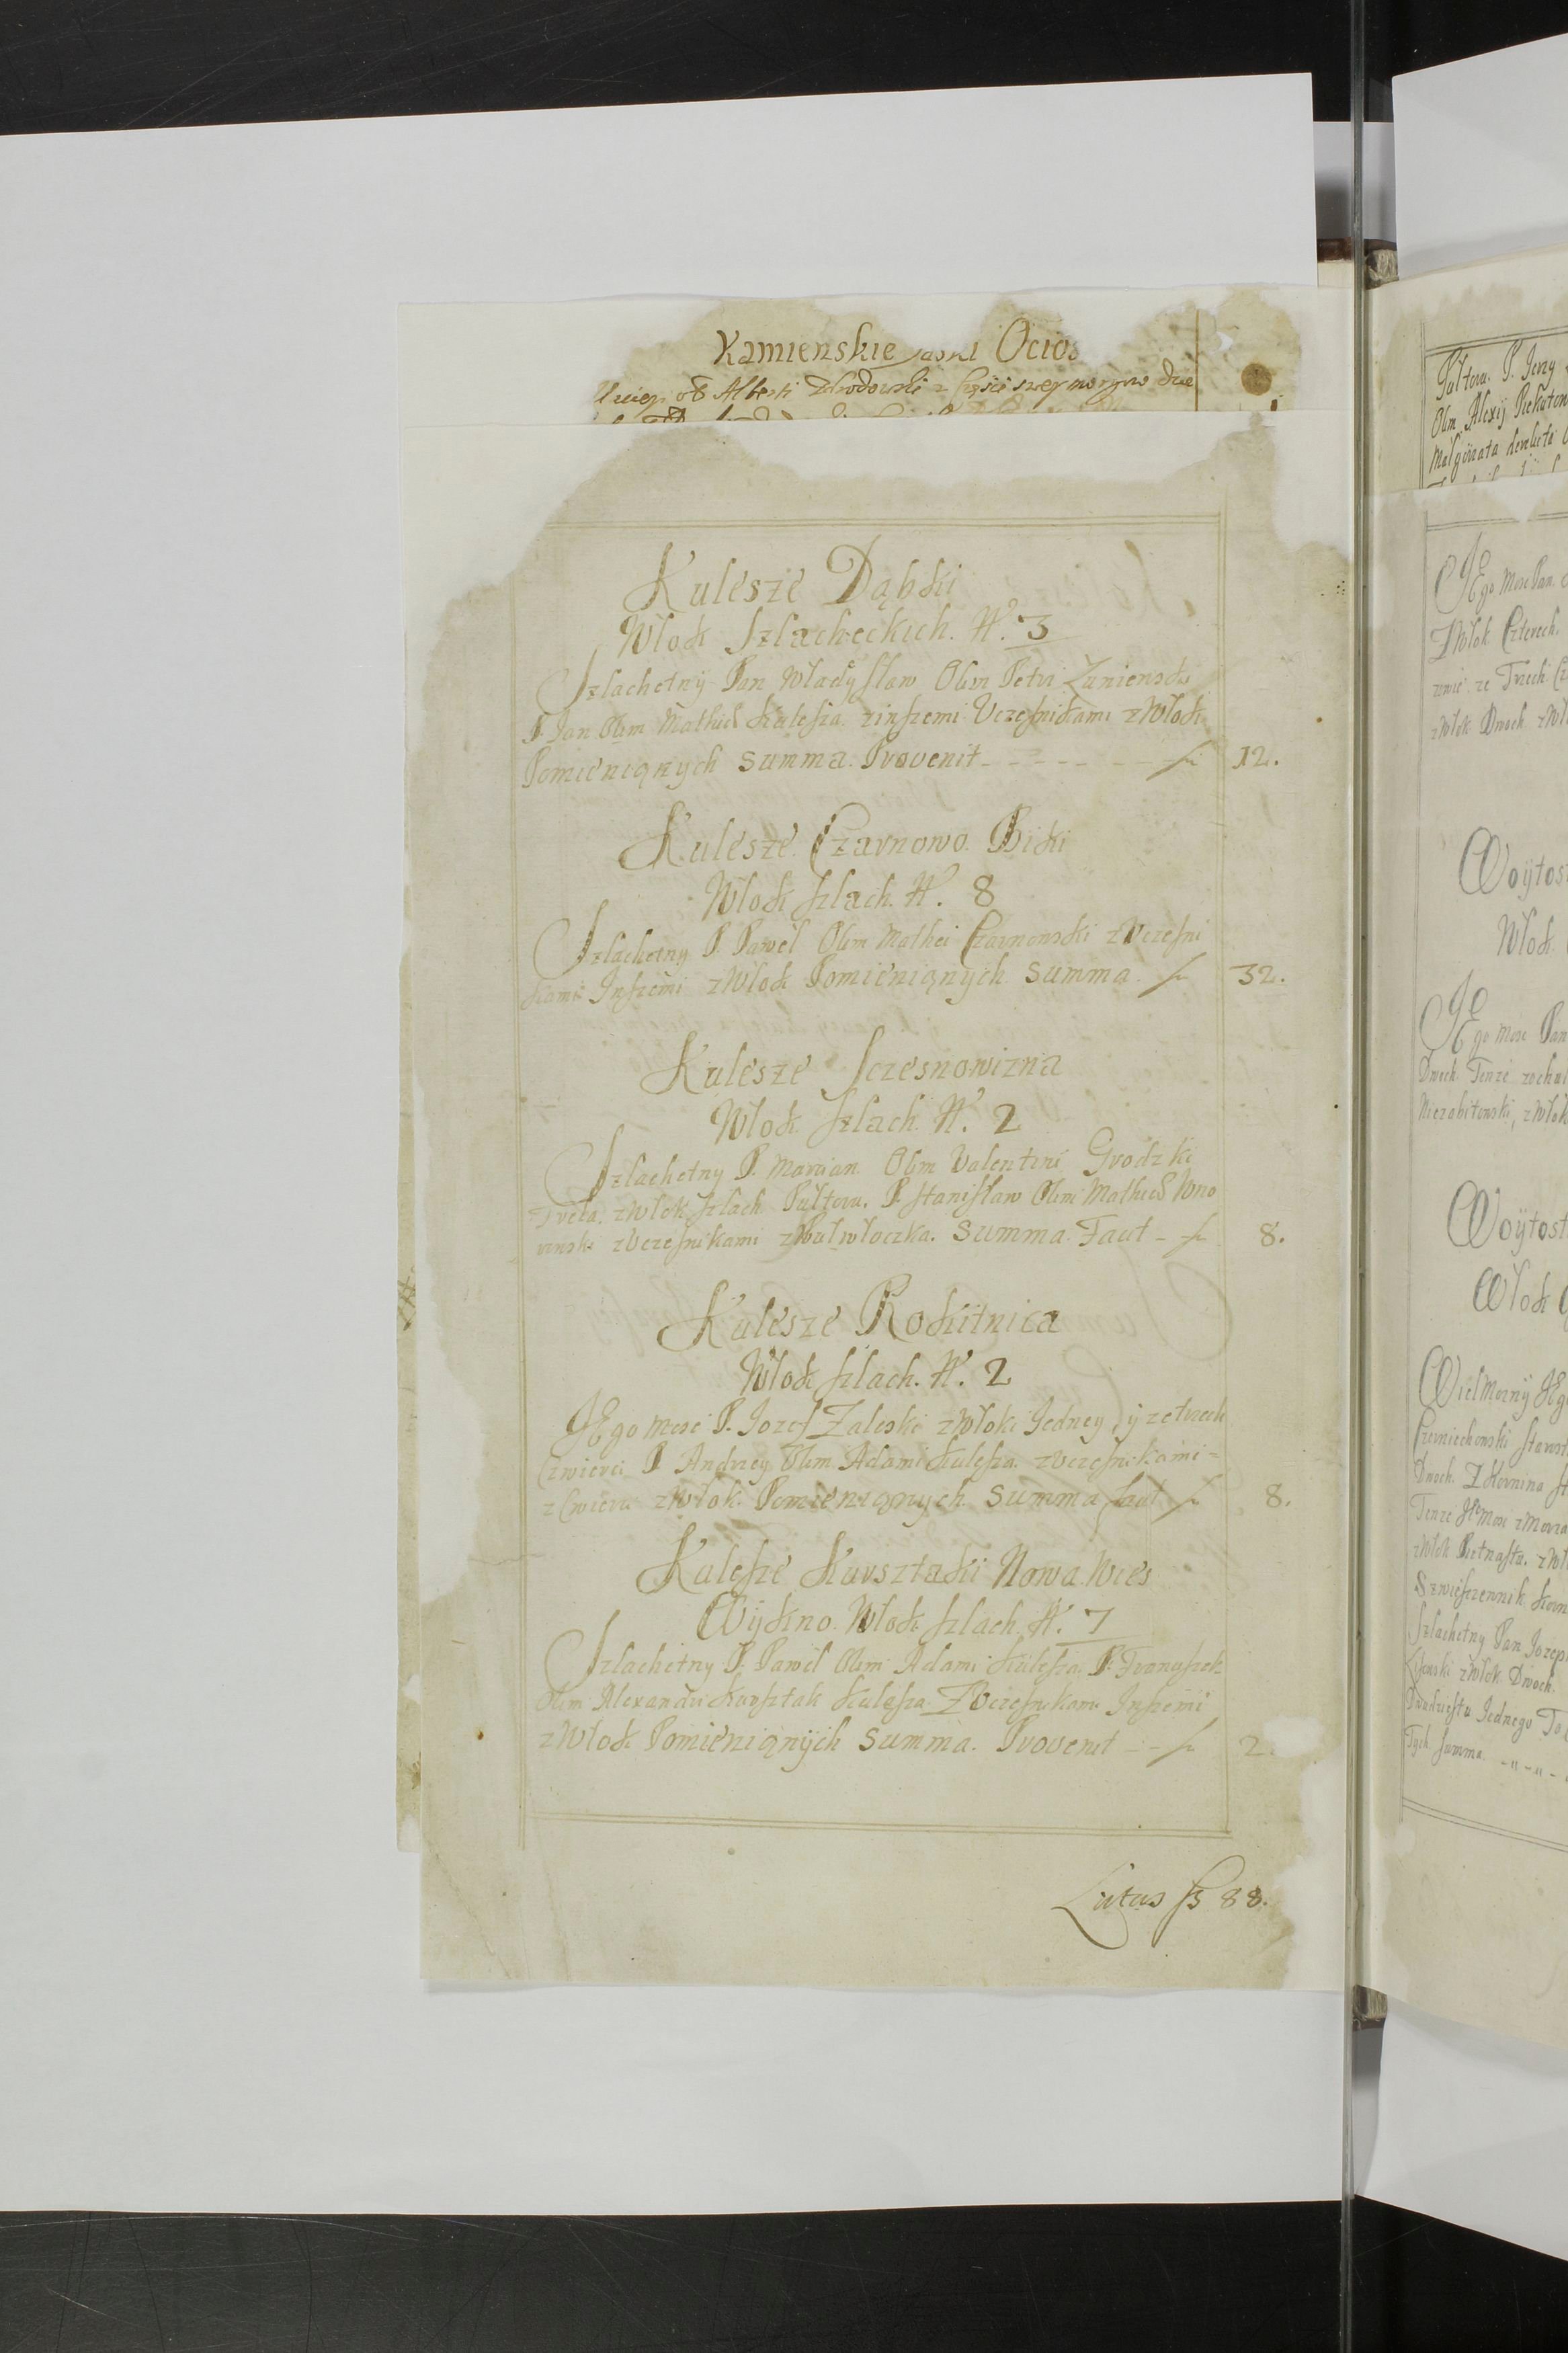 Kamienskie Jaski Ocios
od Alberti
Kulesze Dąbki
Włok Szlacheckich. N. 3
Szlachetny Pan Władysław Olim Petri Zunienski
P. Jan Olim Mathiae Kulesza zinszemi Uczesnikami z Włok
Pomienionych Summa Provenit - - - - - - - fl 12.
Kulesze Czarnowo Biki
Włok szlach. N. 8
Szlachetny P. Paweł Olim Mathei Czarnowski z Uczesni
kami Inszemi z Włok Pomienionych Summa fl 32.
Kulesze Sczesnowizna
Włok szlach. N. 2
Szlachetny P. Marcian Olim Valentini Grodzki
z Włok szlach. Pułtora. P. Stanisław Olim Mathiae Wno
rowski z Uczesnikami z Pułwłoczka. Summa Faut - fl 8.
Kulesze Rokitnica
Włok szlach. N. 2
JEgo Mosc P. Jozef Zaleski z Włoki Jedney, y ze trzech
Czwierci P. Andrzey Olim Adami Kulesza z Uczesnikami -
z Cwierci z Włok Pomienionych Summa faut fl 8.
Kulesze Kursztaki Nowa Wies
Wykno. Włok szlach. N. 7
Szlachetny P. Paweł Olim Adami Kulesza P. Franyszek
Olim Alexandri Kursztak Kulesza Z Uczesnikami Inszemi
z Włok Pomienionych Summa. Provenit - - fl 2
Latus fl 88.
Pułtora. P. Jerzy
Olim Alexij Piekuton
Małgorzata
JEgo Mosc Pan
z Włok Czterech.
ze Trzech
z Włok Dwoch
Woytost
Włok
JEgo Mosc Pan
Dwoch Tenze
Niezabitowski, z Włok
Woytost
Włok
Wielmozny JEgo
Czerniechowski Starost
Dwoch.
Tenze
z Włok Pietnastu.
Swieszczennik
Szlachetny Pan Jozeph
z Włok Dwoch
Dwudziestu Jednego
Tych Summa